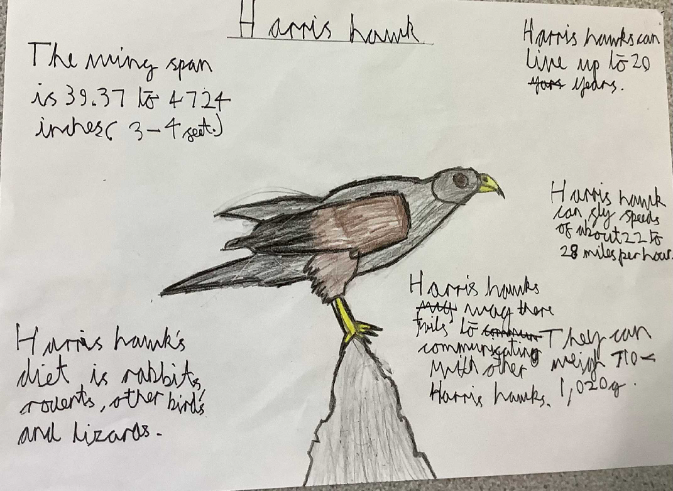 Harris hawk
The wing span
is 39.37 to 4724
inches( 3-4 feet.)
Harris hawks can
live up to 20
yars years.
Harris hawk
can fly speeds
of about 22 to
28 miles per hour.
Harris hawks
wag there
tails to
communicating
with other
Harris hawks.
They can
weigh 710-
1,020g.
Harris hawk's
diet is rabbits,
rodents, other birds
and lizards.